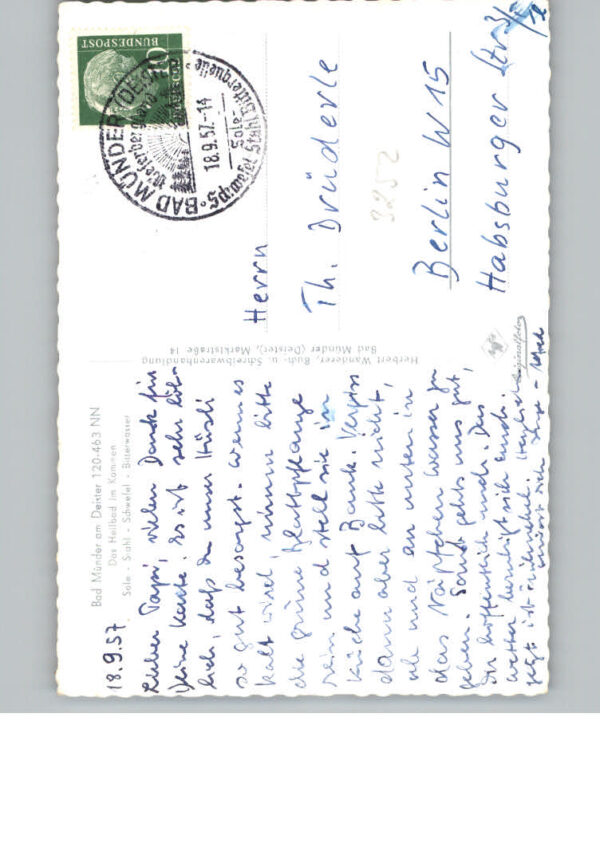 Bad Münder am Deister 120-463 NN
Das Heilbad im Kommen
Sole - Stahl - Schwefel - Bitterwasser
18.9.57
Lieber Papi, vielen Dank für
Deine Karte. Es ist sehr lieb
lich, daß Du unser
so gut besorgst. Wenn es
kalt wird, nimm bitte
die grüne Blattpflanze
rein und stell sie in
Küche auf Bank. Vergiss
dann aber bitte nicht,
ab und an unten in
das Näpfchen Wasser zu
geben. Sonst gehts uns gut,
Dir hoffentlich auch. Das
Wetter beruhigt sich auch.
jetzt ist
Herbert Wanderer, Buch- u. Schreibwarenhandlung
Bad Münder (Deister), Marktstraße 14
Originalfoto
10
BUNDESPOST
BAD MÜNDER (DEISTER)
18.9.57.-14
Sole-
Schwefel Stahl Bitterquelle
Herrn
Th. Drüderle
3252
Berlin W 15
Habsburger Str.